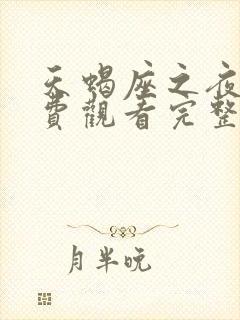 天蝎座之夜
費觀看完整
月半晚